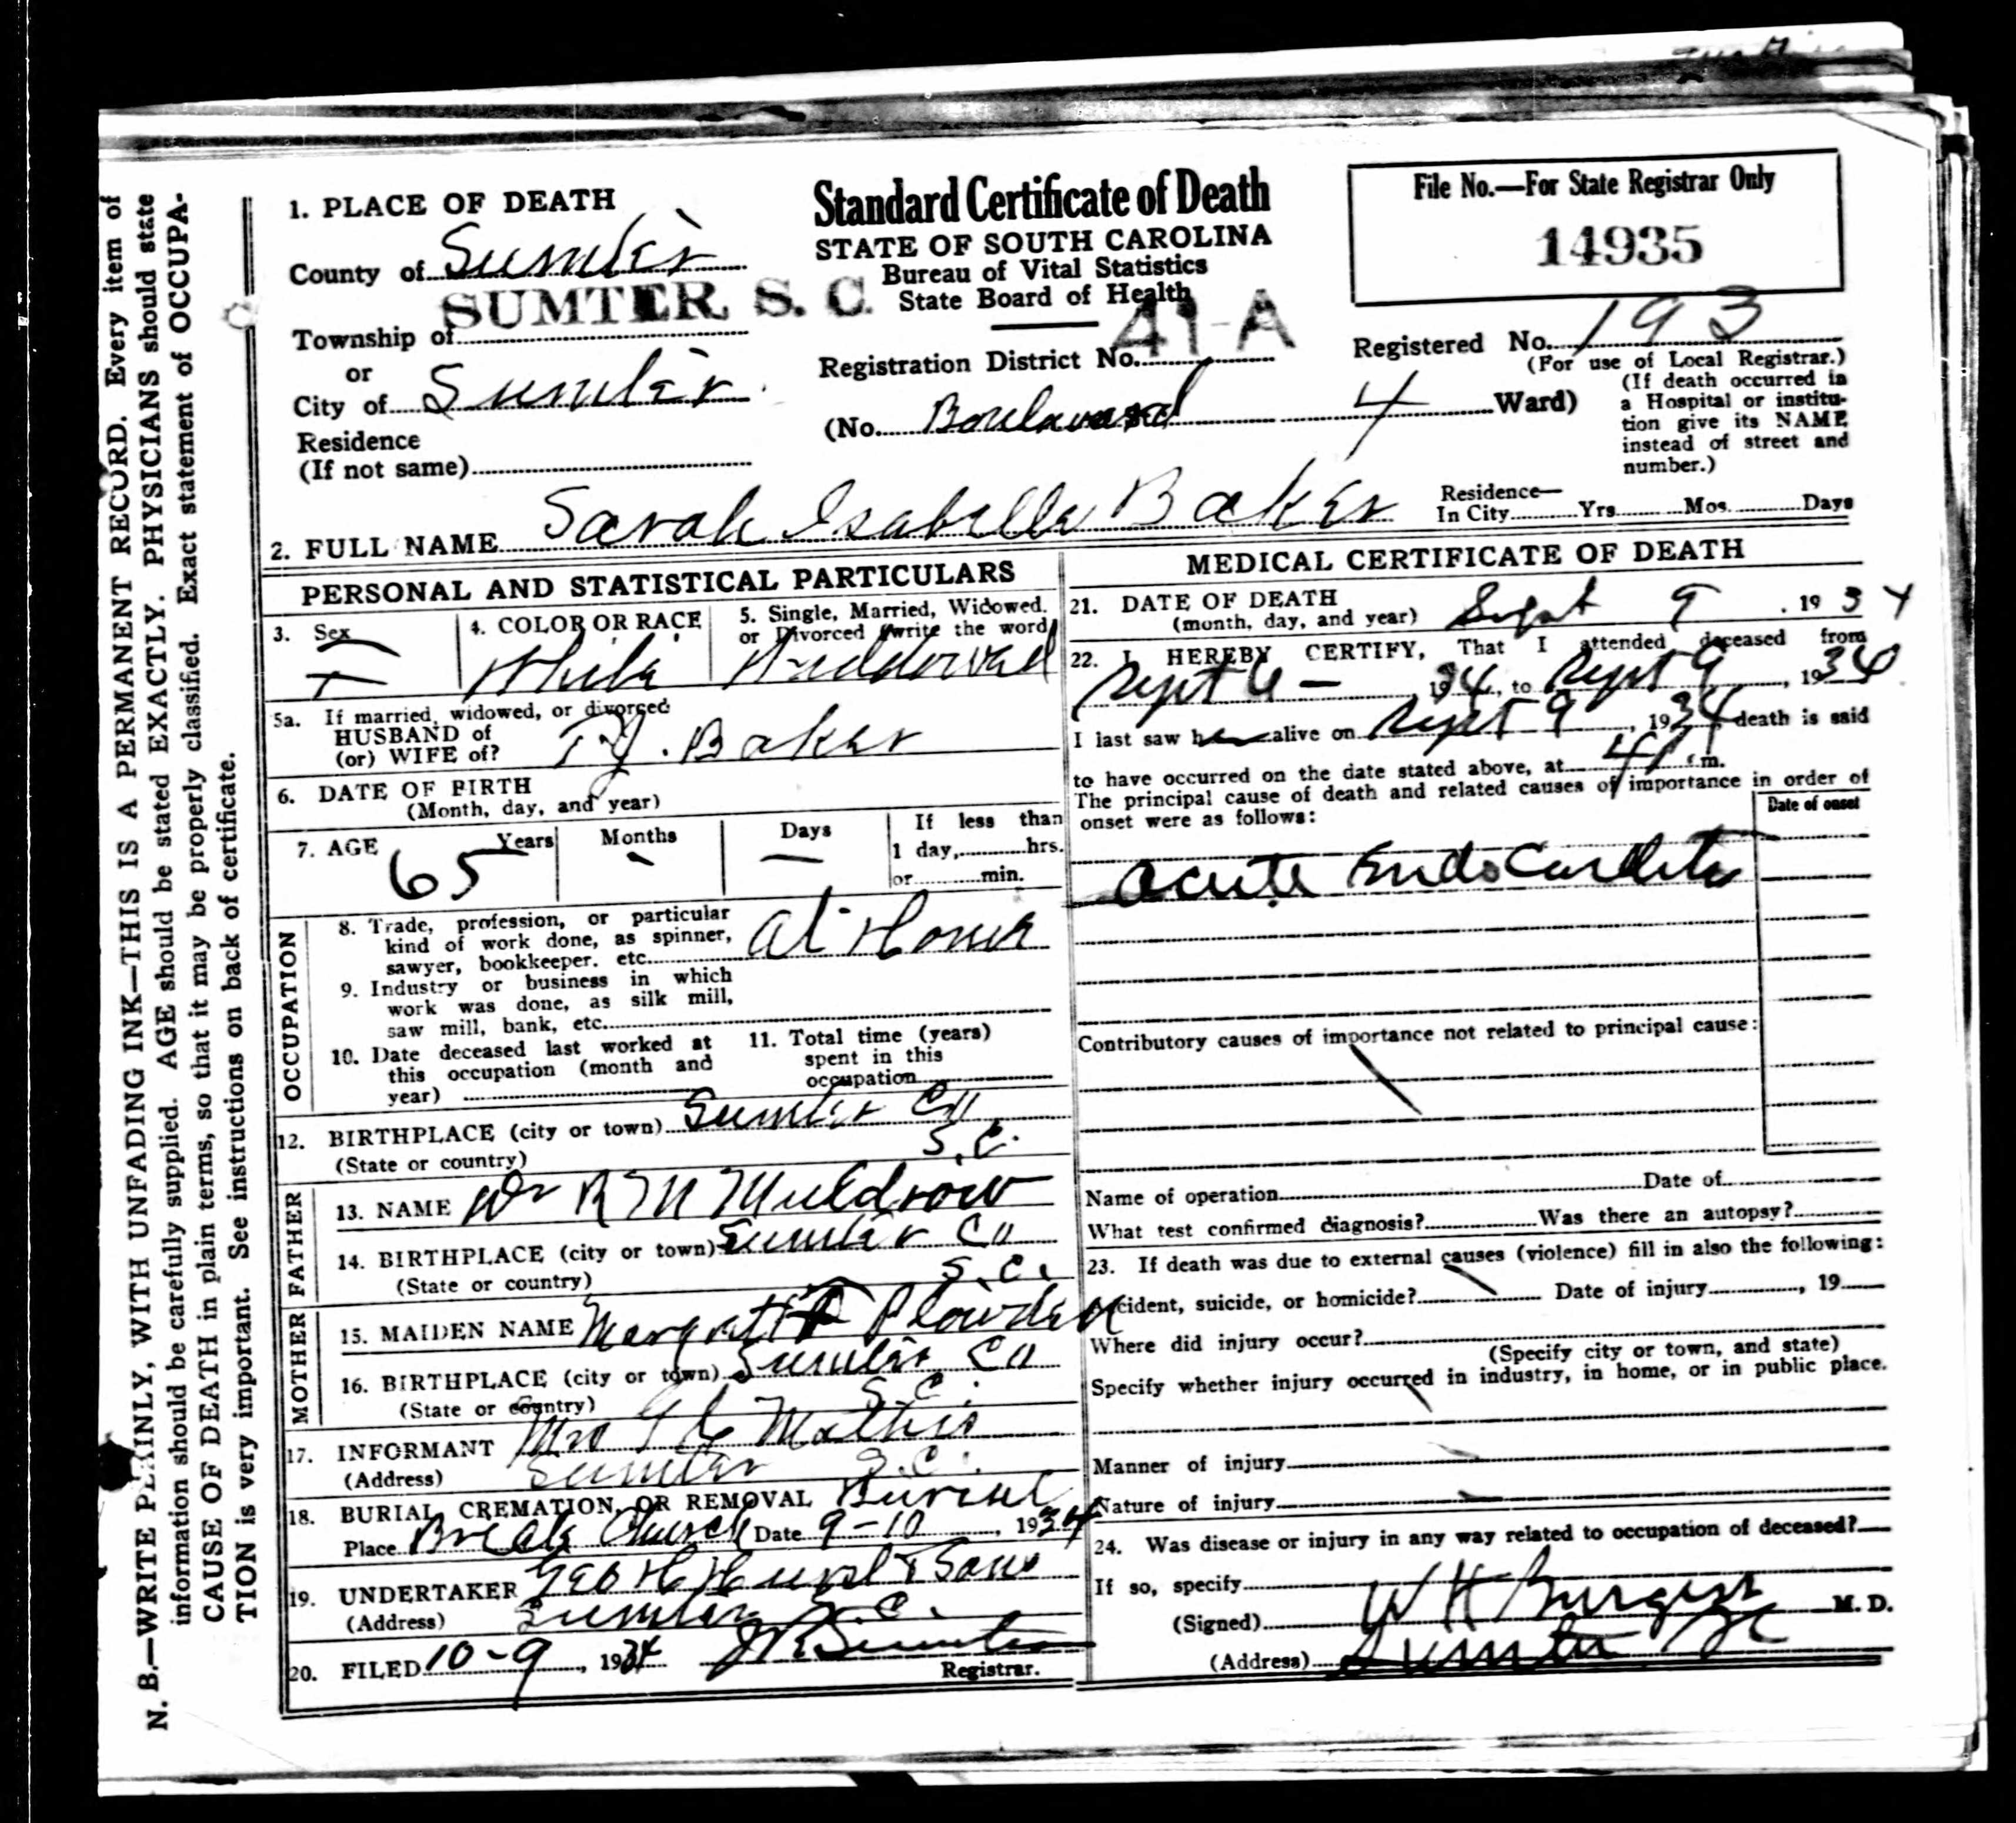 N. B.—WRITE PLAINLY, WITH UNFADING INK—THIS IS A PERMANENT RECORD. Every item of
information should be carefully supplied. AGE should be stated EXACTLY. PHYSICIANS should state
CAUSE OF DEATH in plain terms, so that it may be properly classified. Exact statement of OCCUPA-
TION is very important. See instructions on back of certificate.
1. PLACE OF DEATH
County of Sumter
SUMTER, S. C.
Township of
or
City of Sumter
Residence
(If not same)
Standard Certificate of Death
STATE OF SOUTH CAROLINA
Bureau of Vital Statistics
State Board of Health
Registration District No. 41-A
(No. Boulevard 4 Ward)
File No.—For State Registrar Only
14935
Registered No. 193
(For use of Local Registrar.)
(If death occurred in
a Hospital or institu-
tion give its NAME
instead of street and
number.)
2. FULL NAME Sarah Isabella Baker
Residence—
In City Yrs. Mos. Days
PERSONAL AND STATISTICAL PARTICULARS
3. Sex
F
4. COLOR OR RACE
White
5. Single, Married, Widowed.
or Divorced (write the word)
Widdowed
5a. If married, widowed, or divorced
HUSBAND of
(or) WIFE of? Baker
6. DATE OF BIRTH
(Month, day, and year)
7. AGE 65 Years
Months -
Days —
If less than
1 day, hrs.
or min.
OCCUPATION
8. Trade, profession, or particular
kind of work done, as spinner,
sawyer, bookkeeper. etc. At Home
9. Industry or business in which
work was done, as silk mill,
saw mill, bank, etc.
10. Date deceased last worked at
this occupation (month and
year)
11. Total time (years)
spent in this
occupation
12. BIRTHPLACE (city or town) Sumter Co
(State or country) S.C.
FATHER
13. NAME Dr R M Muldrow
14. BIRTHPLACE (city or town) Sumter Co
(State or country) S.C.
MOTHER
15. MAIDEN NAME Plowden
16. BIRTHPLACE (city or town) Sumter Co
(State or country) S.C.
17. INFORMANT Mrs Mathis
(Address) Sumter S.C.
18. BURIAL, CREMATION, OR REMOVAL Burial
Place Church Date 9-10, 1934
19. UNDERTAKER Geo H Hurst & Sons
(Address) Sumter S.C.
20. FILED 10-9, 1934
Registrar.
MEDICAL CERTIFICATE OF DEATH
21. DATE OF DEATH
(month, day, and year) Sept 9, 1934
22. I HEREBY CERTIFY, That I attended deceased from
Sept 6 —, 1934, to Sept 9, 1934
I last saw her alive on Sept 9, 1934 death is said
to have occurred on the date stated above, at m.
The principal cause of death and related causes of importance in order of
onset were as follows:
Date of onset
Acute Endocarditis
Contributory causes of importance not related to principal cause:
Name of operation Date of
What test confirmed diagnosis? Was there an autopsy?
23. If death was due to external causes (violence) fill in also the following:
Accident, suicide, or homicide? Date of injury, 19
Where did injury occur?
(Specify city or town, and state)
Specify whether injury occurred in industry, in home, or in public place.
Manner of injury
Nature of injury
24. Was disease or injury in any way related to occupation of deceased?
If so, specify
(Signed) W H Burgess M. D.
(Address) Sumter SC